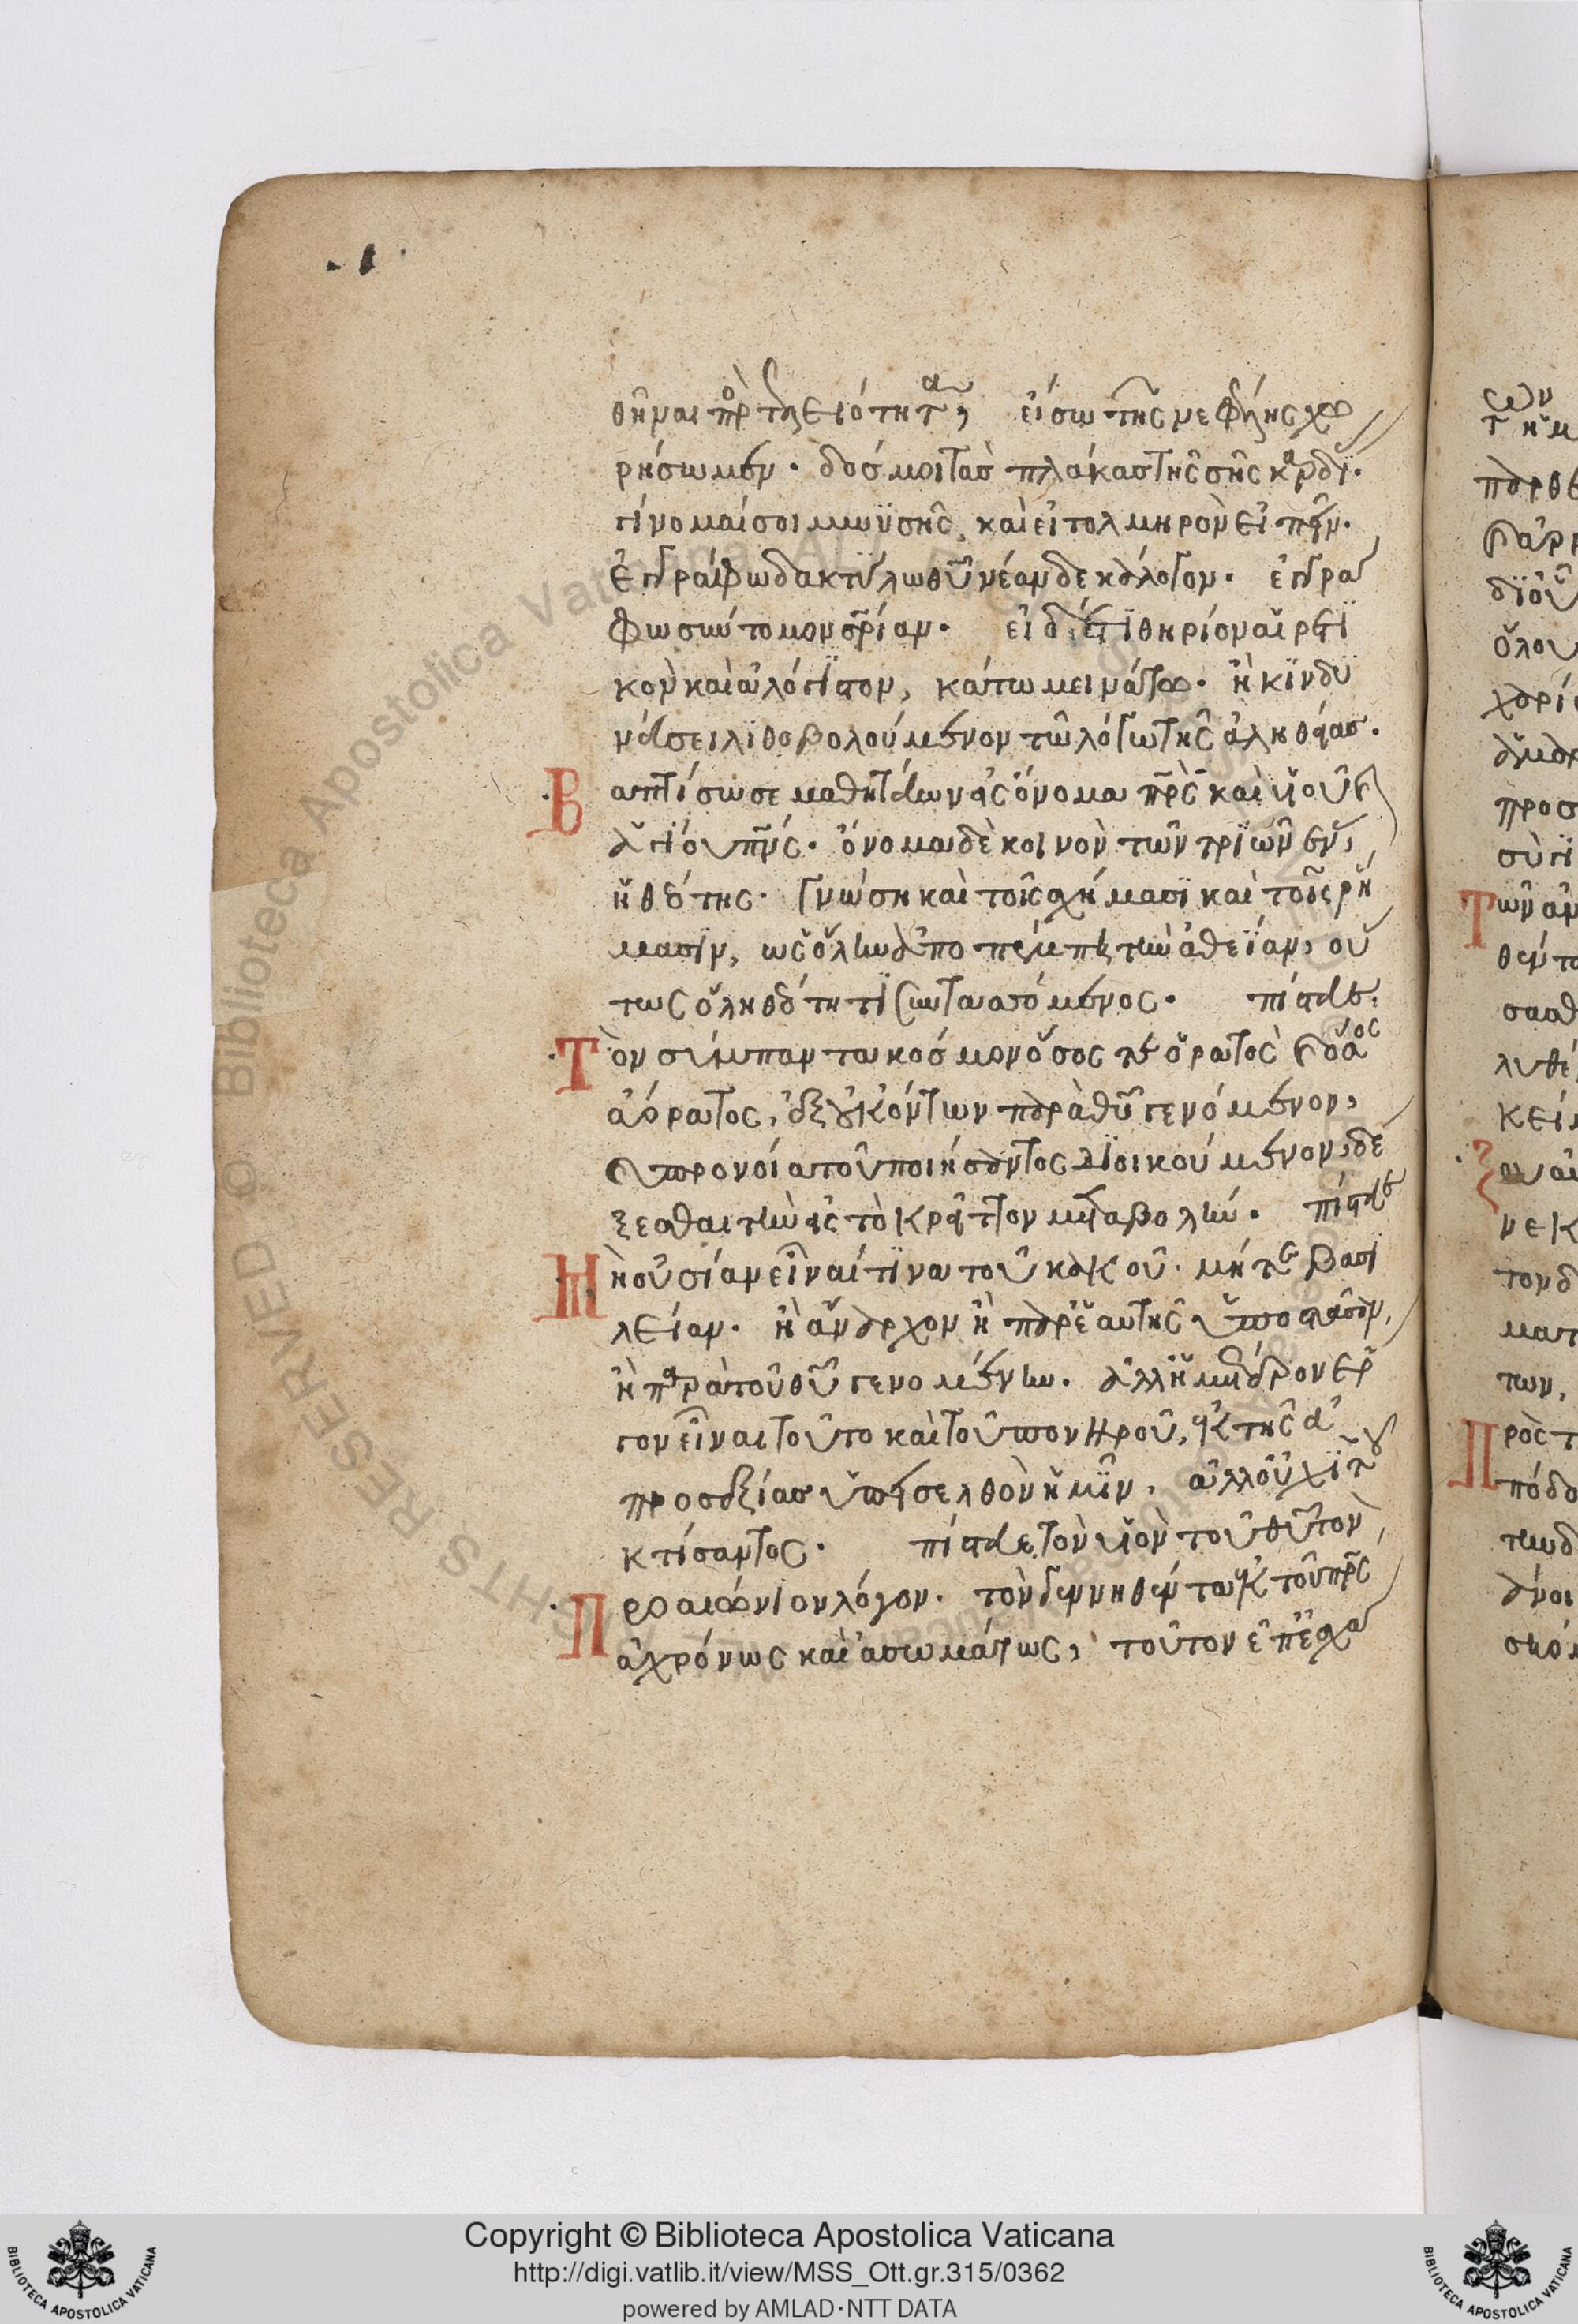 θῆναι πρὸς τελειότητα, εἴσω τῆς νεφέλης χω
ρήσωμεν. δός μοι τὰς πλάκας τῆς σῆς καρδί.
γίνομαί σοι μωϋσῆς, καὶ εἰ τολμηρὸν εἰπεῖν.
ἐγγράφω δακτύλω θῦ νέαν δεκάλογον. ἐγγρά
φω σύντομον σρίαν. εἰ δέ τι θηρίον αἱρετι
κὸν καὶ ἀλόγιστον, κάτω μεινάτω. ἢ κινδυ
νεύσει λιθοβολούμενον τῶ λόγω τῆς ἀληθείας.
Βαπτίσω σε μαθητεύων εἰς ὄνομα πρς καὶ υἱοῦ καὶ
ἁγίου πνς. ὄνομα δὲ κοινὸν τῶν τριῶν ἕν,
ἡ θεότης. γνώση καὶ τοῖς σχήμασι καὶ τοῖς ῥή
μασιν, ὡς ὅλην ἀποπέμπη τὴν ἀθεΐαν, οὕ
τως ὅλη θεότητι συντασσόμενος. πίστευε.
Τὸν σύμπαντα κόσμον ὅσος τε ὁρατὸς καὶ ὅσος
ἀόρατος, ἐξ οὐκ ὄντων παρὰ θῦ γενόμενον,
καὶ προνοία τοῦ ποιήσαντος διοικούμενον, δέ
ξεσθαι τὴν εἰς τὸ κρεῖττον μεταβολήν. πίστευε
Μὴ οὐσίαν εἶναί τινα τοῦ κακοῦ. μήτε βασι
λείαν. ἢ ἄναρχον ἢ παρ' ἑαυτῆς ὑποστᾶσαν,
ἢ παρὰ τοῦ θῦ γενομένην. ἀλλ' ἡμέτερον ἔρ
γον εἶναι τοῦτο καὶ τοῦ πονηροῦ, ἐκ τῆς ἀ
προσεξίας ἐπεισελθὸν ἡμῖν, ἀλλ' οὐχὶ τοῦ
κτίσαντος. πίστευε τὸν υἱὸν τοῦ θῦ τὸν
Προαιώνιον λόγον. τὸν γεννηθέντα ἐκ τοῦ πρς
ἀχρόνως καὶ ἀσωμάτως, τοῦτον ἐπ' ἐσχά
Copyright © Biblioteca Apostolica Vaticana
http://digi.vatlib.it/view/MSS_Ott.gr.315/0362
powered by AMLAD·NTT DATA
BIBLIOTECA APOSTOLICA VATICANA
BIBLIOTECA APOSTOLICA VATICANA